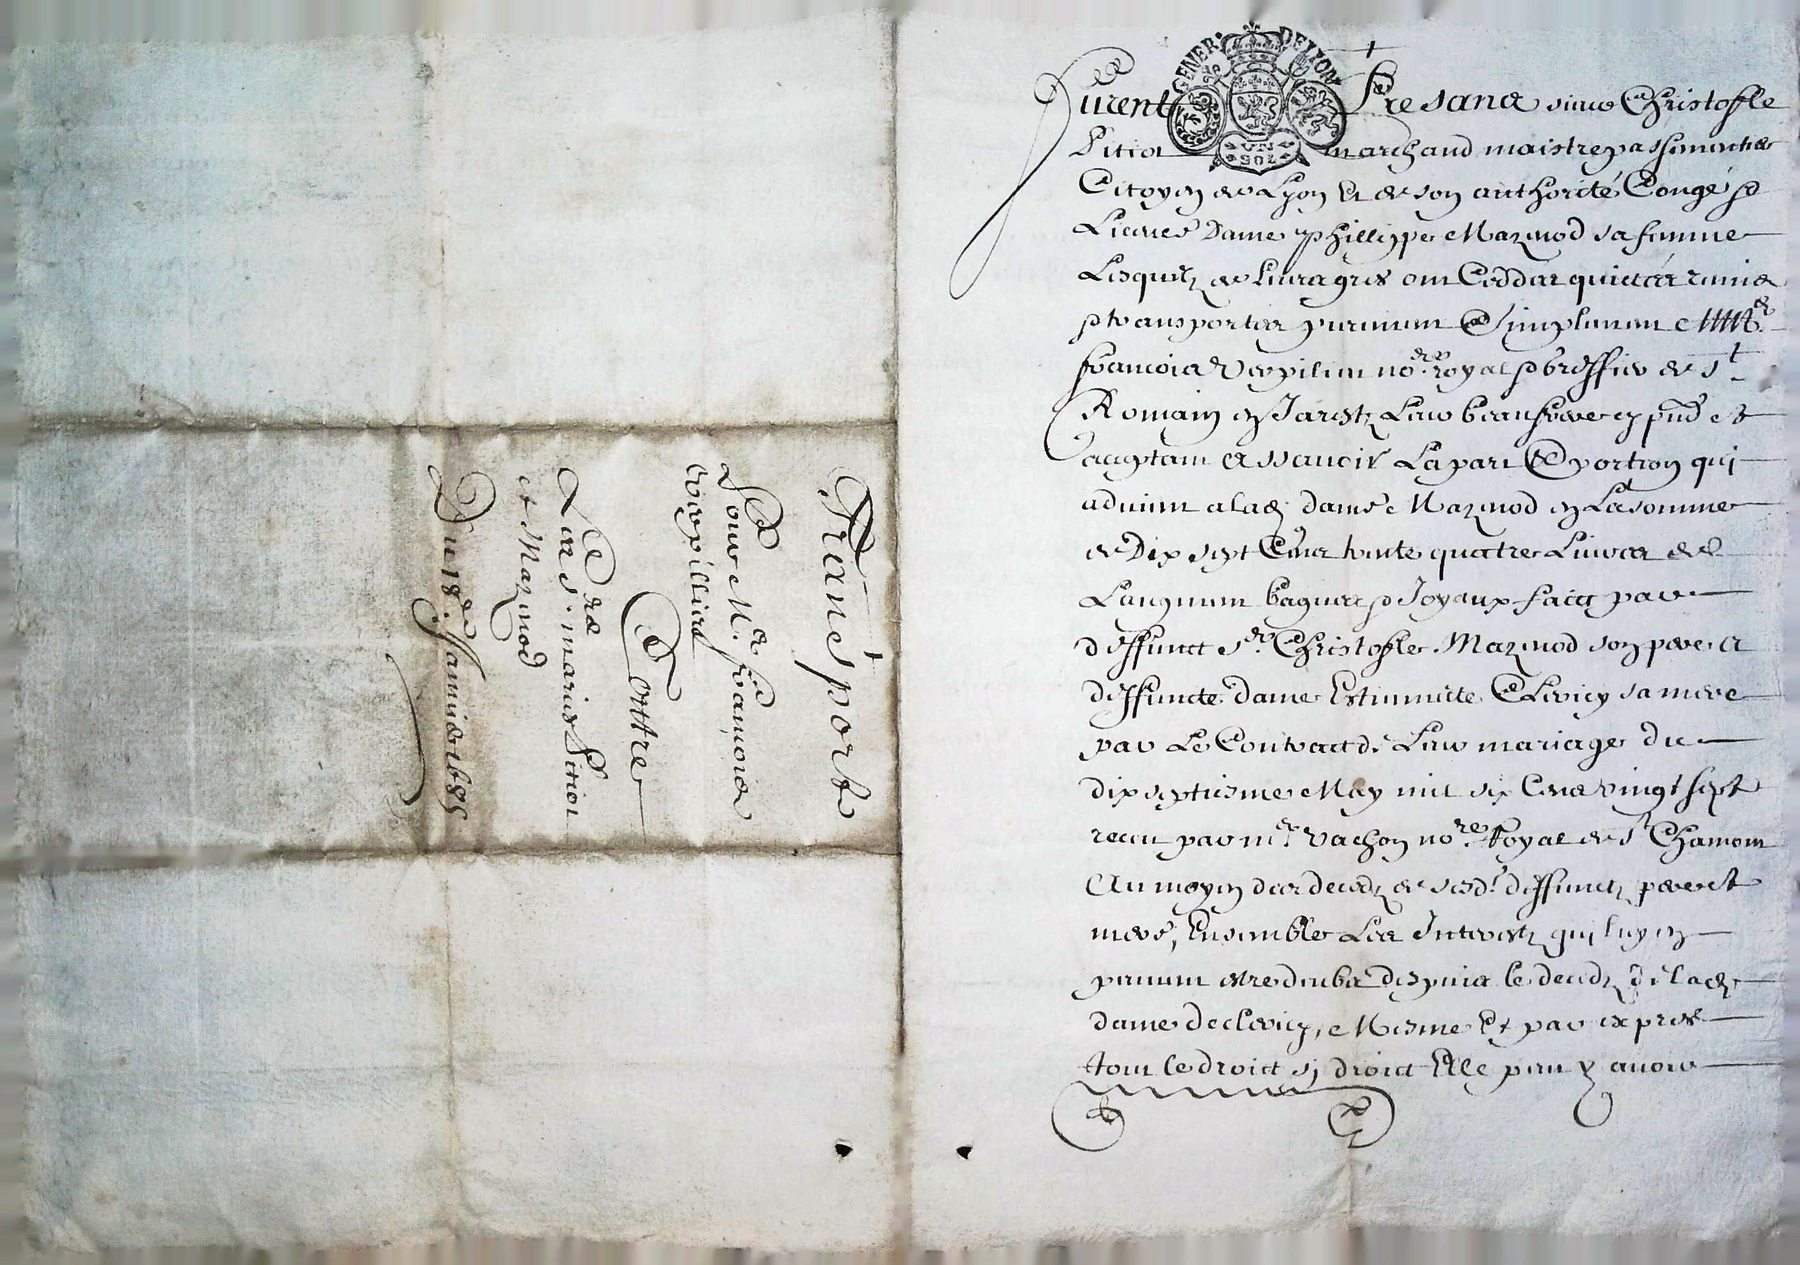 Transport
Pour Me. françois
verpilieu
Contre
Les srs. mariés Pitiot
et Mazenod
Du 18e. Janvier 1685
GENER. DE LYON
UN SOL
furent presans sieur Christofle
Pitiot marchand maistre passementier
Citoyen de Lyon Et de son authorité Congé &
Licence Dame phillippe Mazenod sa femme
Lesquelz de leur gré ont Ceddé quitté remis
& transporté purement & simplement A Me.
françois Verpilieu nore. royal & greffier de St
Romain en Jarestz Leur beaufrere cy pnt et
acceptant Assavoir La part & portion qui
advient a lad. dame Mazenod en La somme
de Dix sept Cens trente quatre Livres de
L'augment bagues & Joyaux faict par
deffunct sr. Christofle Mazenod son pere A
deffuncte dame Estiennette Clericy sa mere
par Le Contract de Leur mariage du
dix septiesme May mil six Cens vingt sept
receu par me. Vachon nore. Royal de St Chamont
Au moyen des decedz de sesd. deffunctz pere et
mere, Ensemble Les Interestz qui luy en
peuvent estre deubz despuis le decedz de lad.
dame de clericy, Mesme Et par expres
tout le droict sy droict Elle peut y avoir